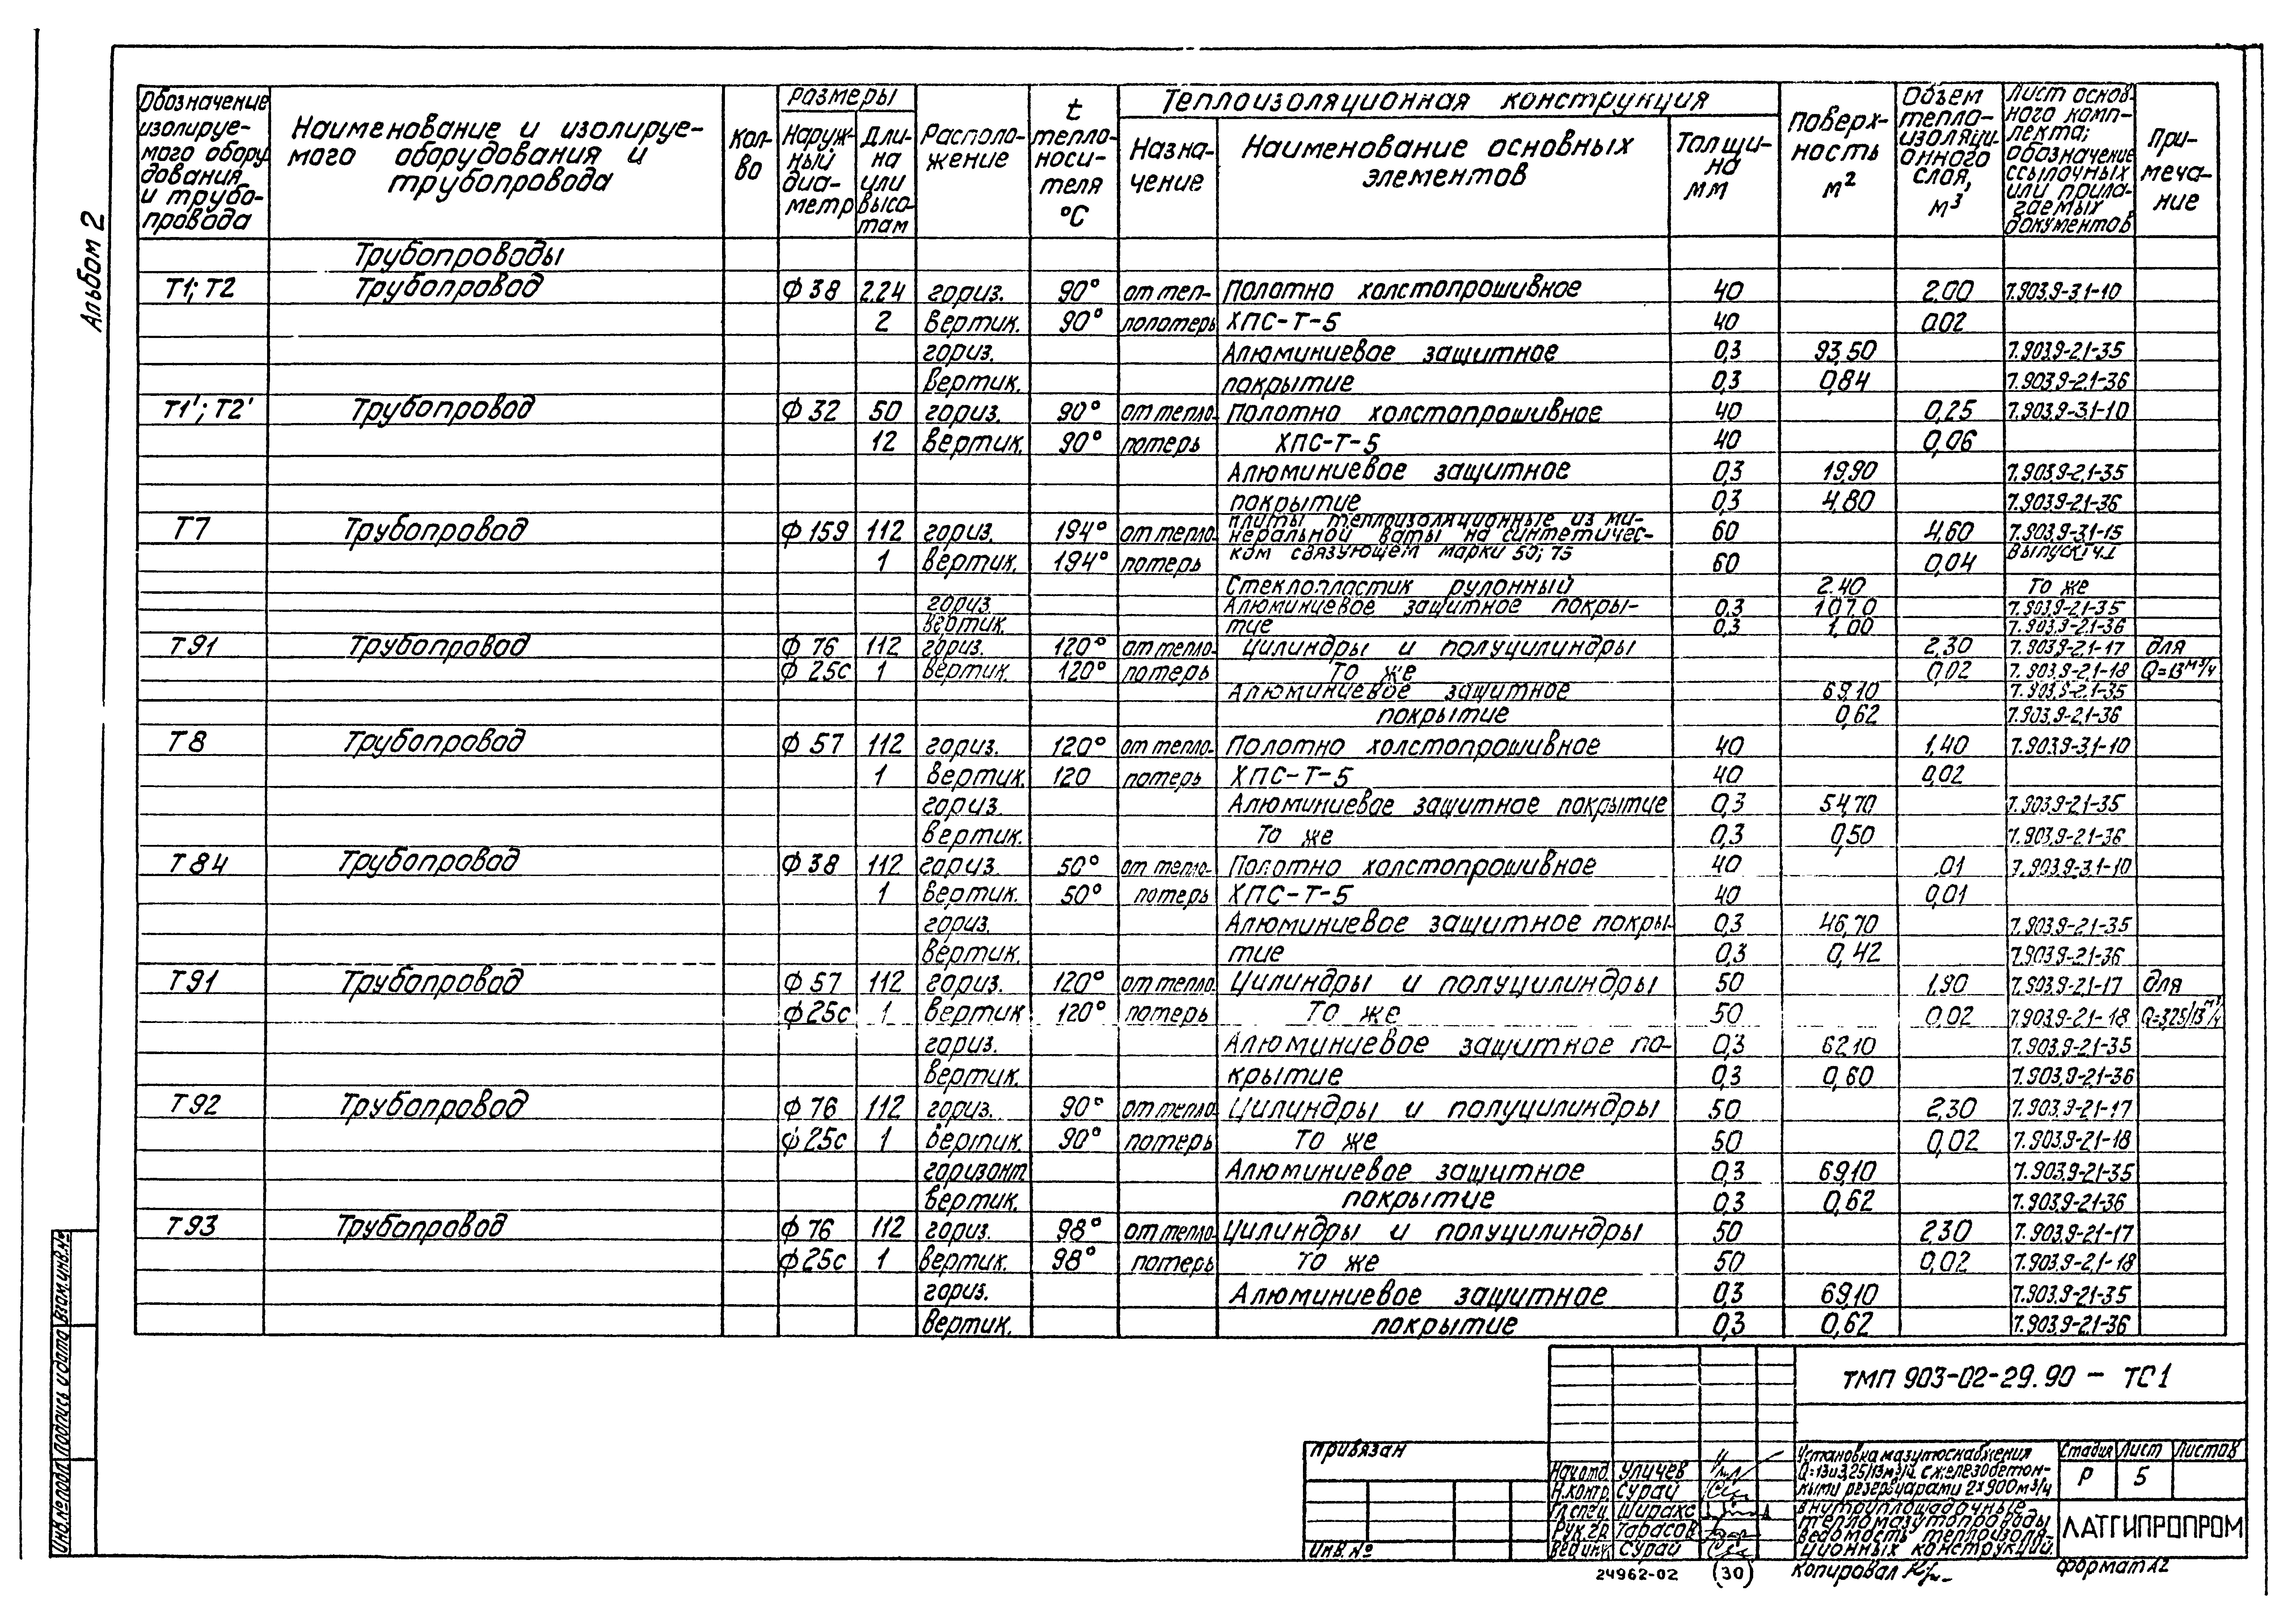 Альбом 2
Обозначение изолируемого оборудования и трубопровода | Наименование и изолируемого оборудования и трубопровода | Кол-во | Размеры | Расположение | t теплоносителя °С | Теплоизоляционная конструкция | Поверхность м² | Объем теплоизоляционного слоя, м³ | Лист основного комплекта; обозначение ссылочных или прилагаемых документов | Примечание
Наружный диаметр | Длина или высотам | Назначение | Наименование основных элементов | Толщина мм
Трубопроводы
Т1; Т2 Трубопровод ф 38 224 гориз. 90° от теп- Полотно холстопрошивное 40 2,00 7.903.9-3.1-10
2 вертик. 90° лопотерь ХПС-Т-5 40 0,02
гориз. Алюминиевое защитное 0,3 93,50 7.903.9-2.1-35
вертик. покрытие 0,3 0,84 7.903.9-2.1-36
Т1'; Т2' Трубопровод ф 32 50 гориз. 90° от тепло- Полотно холстопрошивное 40 0,25 7.903.9-3.1-10
12 вертик. 90° потерь ХПС-Т-5 40 0,06
Алюминиевое защитное 0,3 19,90 7.903.9-2.1-35
покрытие 0,3 4,80 7.903.9-2.1-36
Т7 Трубопровод ф 159 112 гориз. 194° от тепло- плиты теплоизоляционные из ми-
неральной ваты на синтетичес- 60 4,60 7.903.9-3.1-15
1 вертик. 194° потерь ком связующем марки 50; 75 60 0,04 Выпуск 1 ч.1
Стеклопластик рулонный 2.40 То же
гориз. Алюминиевое защитное покры- 0,3 107,0 7.903.9-2.1-35
вертик. тие 0,3 1,00 7.903.9-2.1-36
Т91 Трубопровод ф 76 112 гориз. 120° от тепло- Цилиндры и полуцилиндры 2,30 7.903.9-2.1-17 для
ф 25с 1 вертик. 120° потерь То же 0,02 7.903.9-2.1-18 Q=13 м³/ч
Алюминиевое защитное 69,10 7.903.9-2.1-35
покрытие 0,62 7.903.9-2.1-36
Т8 Трубопровод ф 57 112 гориз. 120° от тепло- Полотно холстопрошивное 40 1,40 7.903.9-3.1-10
1 вертик. 120 потерь ХПС-Т-5 40 0,02
гориз. Алюминиевое защитное покрытие 0,3 54,70 7.903.9-2.1-35
вертик. То же 0,3 0,50 7.903.9-2.1-36
Т84 Трубопровод ф 38 112 гориз. 50° от тепло- Полотно холстопрошивное 40 ,01 7.903.9-3.1-10
1 вертик. 50° потерь ХПС-Т-5 40 0,01
гориз. Алюминиевое защитное покры- 0,3 46,70 7.903.9-2.1-35
вертик. тие 0,3 0,42 7.903.9-2.1-36
Т91 Трубопровод ф 57 112 гориз. 120° от тепло Цилиндры и полуцилиндры 50 1,90 7.903.9-2.1-17 для
ф25с 1 вертик 120° потерь То же 50 0,02 7.903.9-2.1-18 Q=3,25/13 м³/ч
гориз. Алюминиевое защитное по- 0,3 62,10 7.903.9-2.1-35
вертик. крытие 0,3 0,60 7.903.9-2.1-36
Т92 Трубопровод ф 76 112 гориз. 90° от тепло Цилиндры и полуцилиндры 50 2,30 7.903.9-2.1-17
ф25с 1 вертик. 90° потерь То же 50 0,02 7.903.9-2.1-18
горизонт. Алюминиевое защитное 0,3 69,10 7.903.9-2.1-35
вертик. покрытие 0,3 0,62 7.903.9-2.1-36
Т93 Трубопровод ф 76 112 гориз. 98° от тепло- Цилиндры и полуцилиндры 50 2,30 7.903.9-2.1-17
ф25с 1 вертик. 98° потерь То же 50 0,02 7.903.9-2.1-18
гориз. Алюминиевое защитное 0,3 69,10 7.903.9-2.1-35
вертик. покрытие 0,3 0,62 7.903.9-2.1-36
Инв.№подл. Подпись и дата Взам.инв.№
ТМП 903-02-29.90 - ТС1
Привязан
Инв.№
Нач.отд. Уличев
Н.контр. Сурай
Гл.спец. Ширакс
Рук.гр. Тарасов
Вед.инж. Сурай
Установка мазутоснабжения
Q=13 и 3,25/13 м³/ч с железобетон-
ными резервуарами 2х900 м³/ч
Внутриплощадочные
тепломазутопроводы
Ведомость теплоизоля-
ционных конструкций.
Стадия Лист Листов
Р 5
ЛАТГИПРОПРОМ
24962-02 (30) Копировал Формат А2